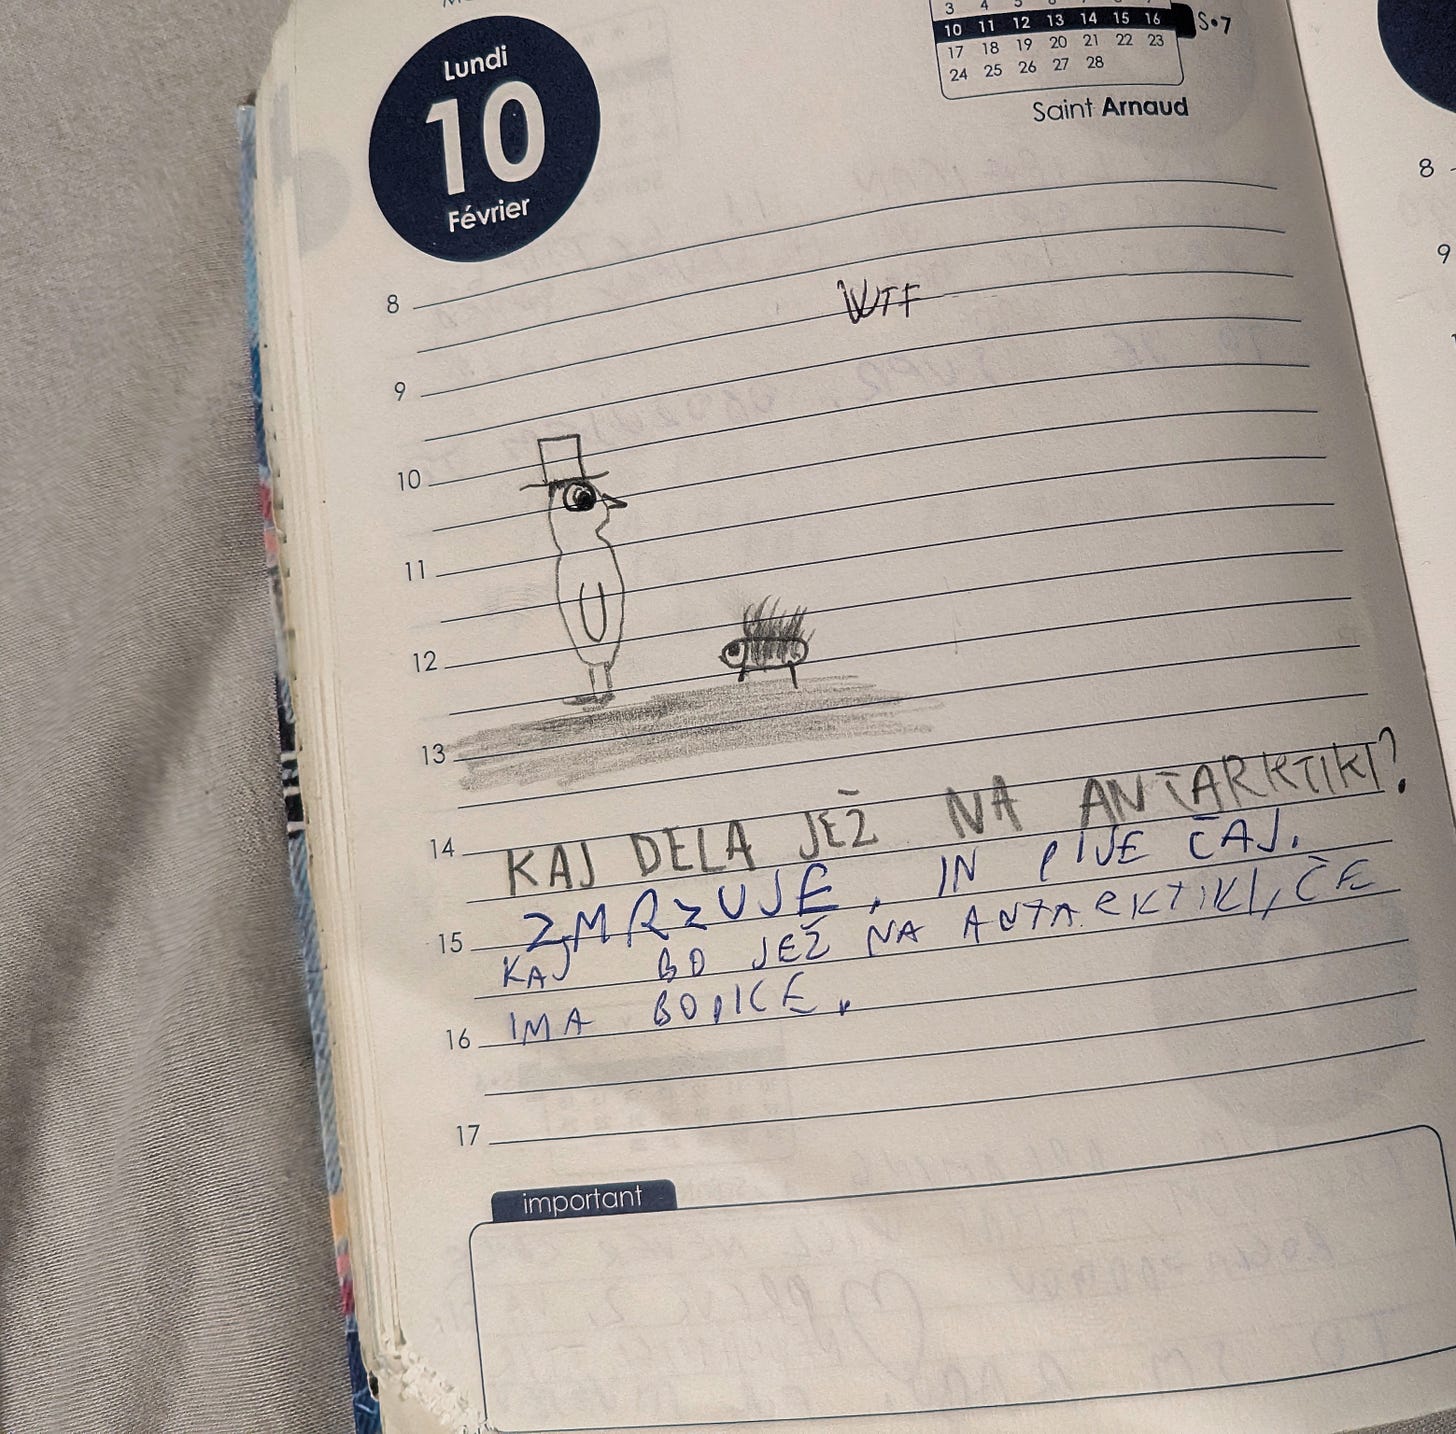 Lundi
10
Février
3 4 5
10 11 12 13 14 15 16
S•7
17 18 19 20 21 22 23
24 25 26 27 28
Saint Arnaud
8
WTF
9
10
11
12
13
KAJ DELA JEŽ NA ANTARKTIKI?
14
ZMRZUJE, IN PIJE ČAJ.
15
KAJ BO JEŽ NA ANTARKTIKI, ČE
IMA BODICE.
16
17
important
8
9